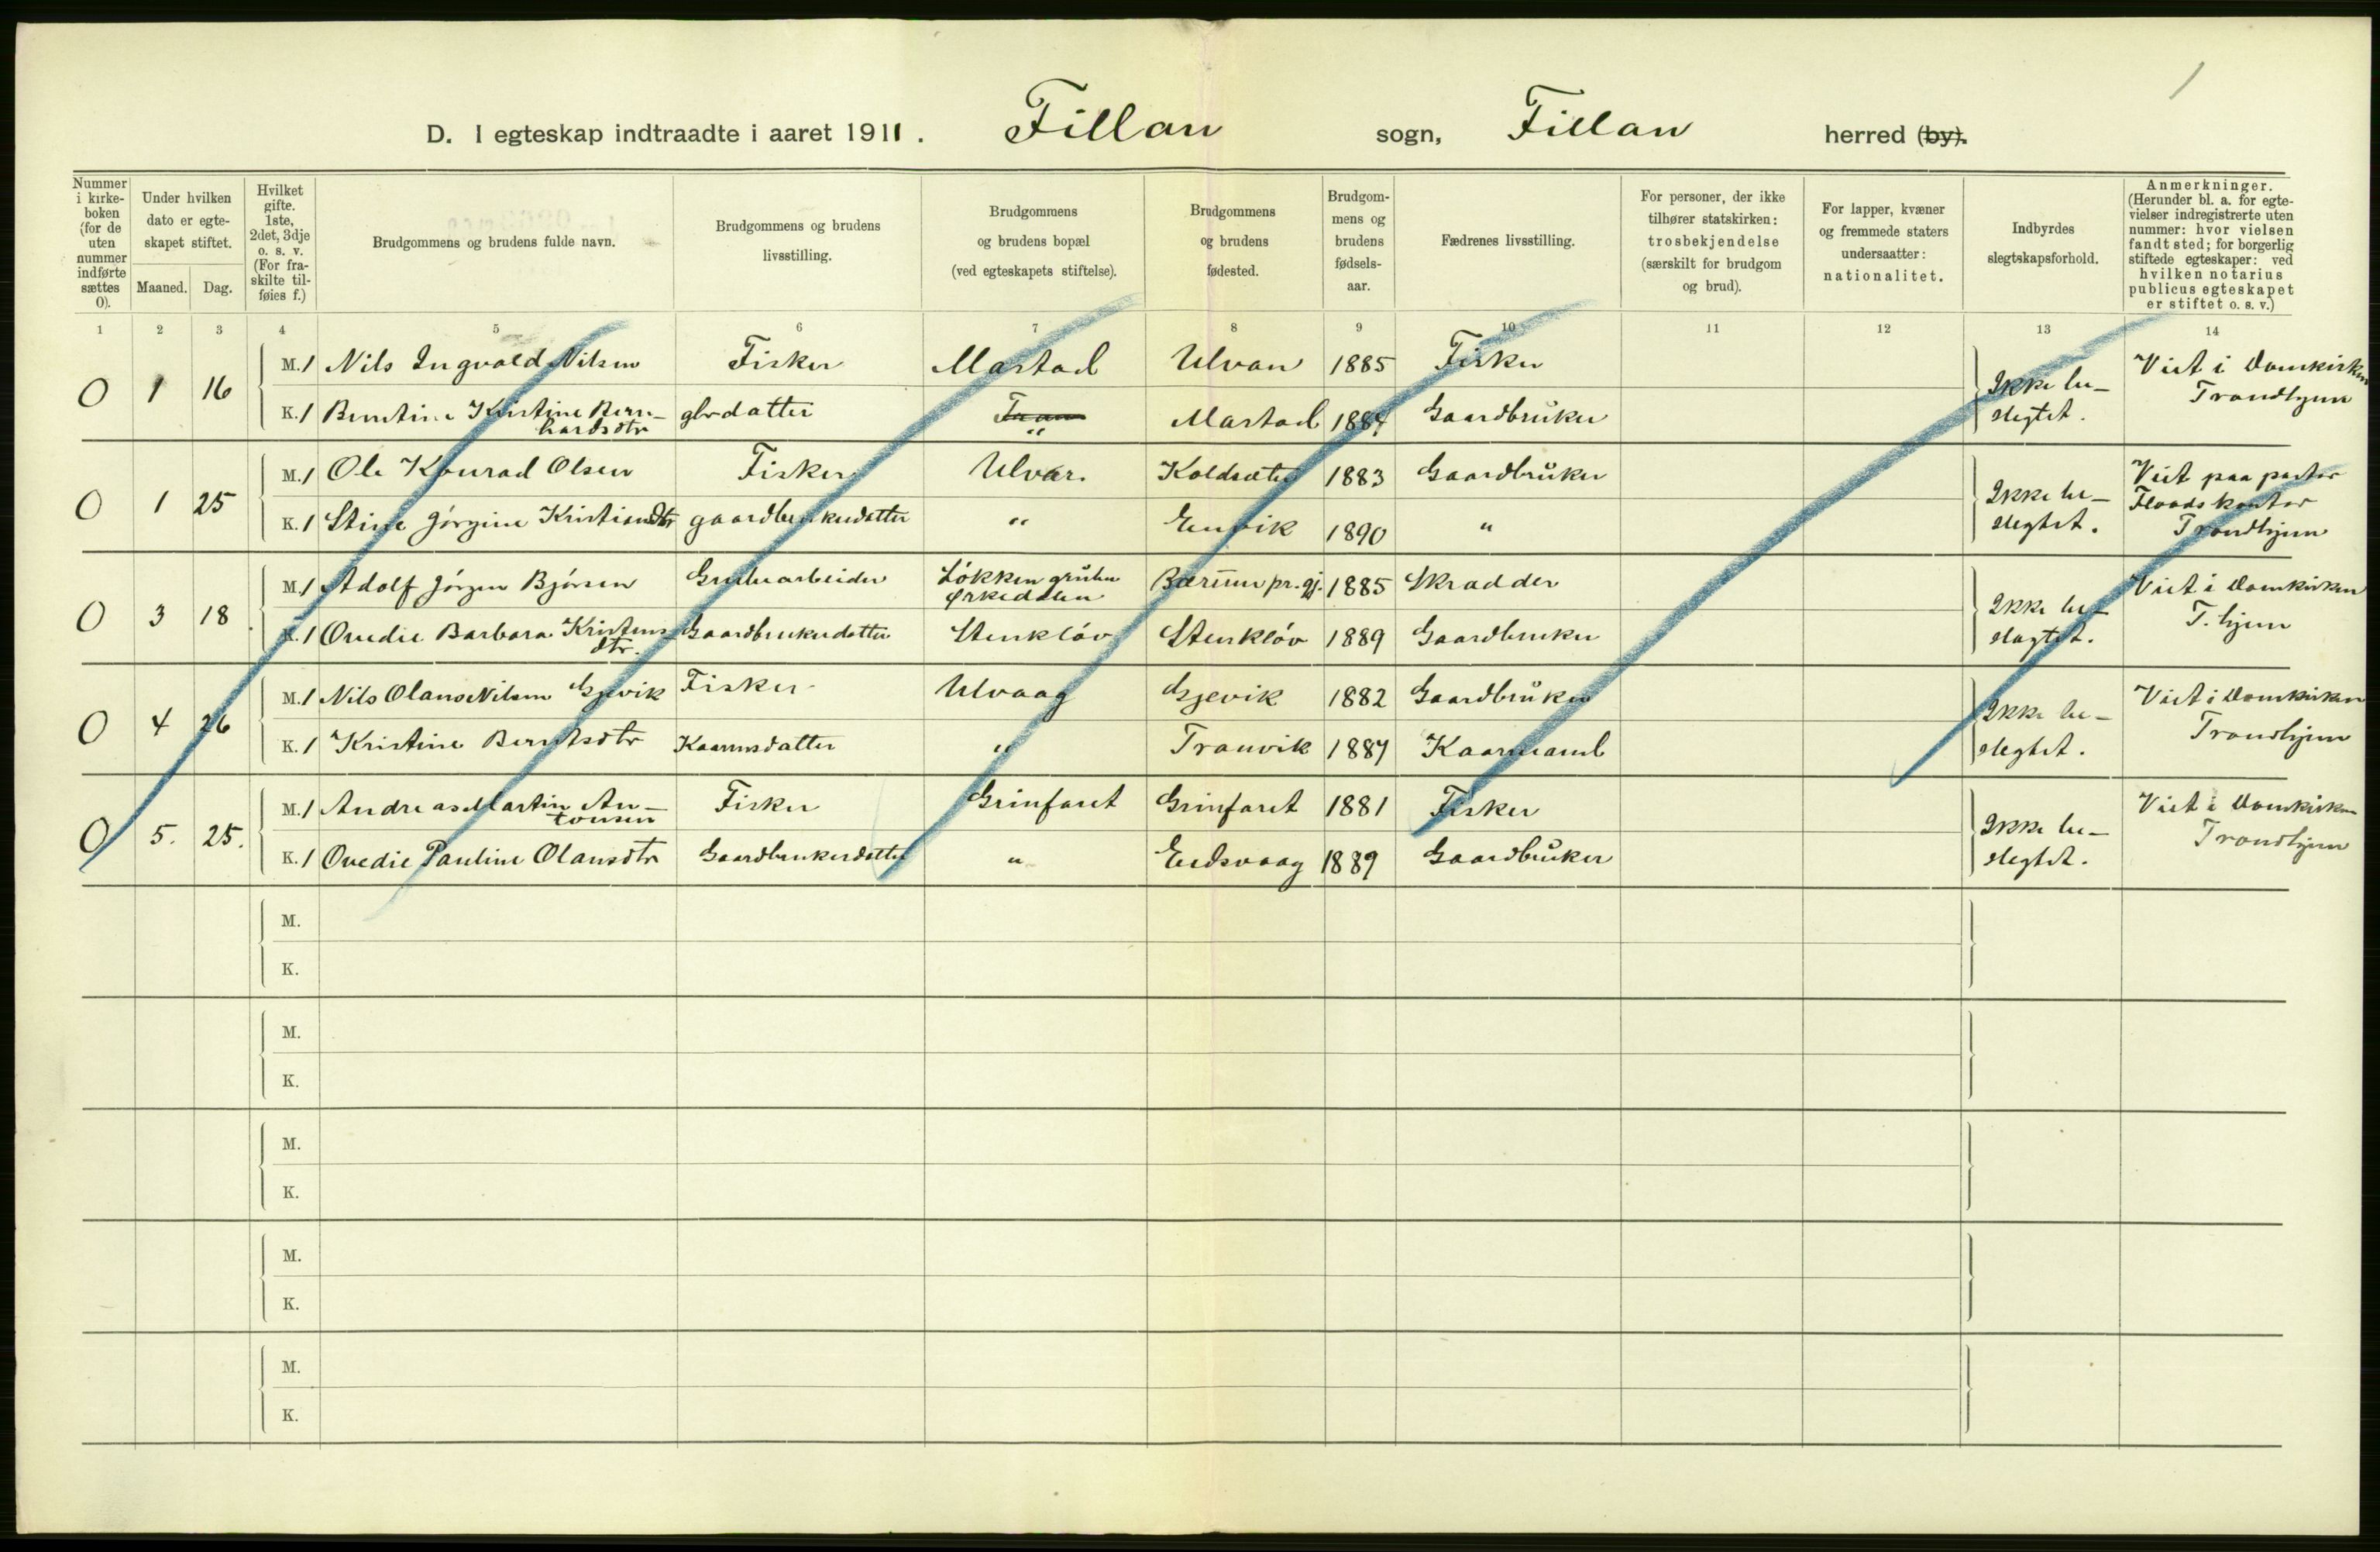 1
D. I egteskap indtraadte i aaret 1911. Fillan sogn, Fillan herred (by).
Nummer i kirke-boken (for de uten nummer indførte sættes 0).
Under hvilken dato er egte-skapet stiftet.
Maaned. Dag.
Hvilket gifte. 1ste, 2det, 3dje o. s. v. (For fra-skilte til-føies f.)
Brudgommens og brudens fulde navn.
Brudgommens og brudens livsstilling.
Brudgommens og brudens bopæl (ved egteskapets stiftelse).
Brudgommens og brudens fødested.
Brudgom-mens og brudens fødsels-aar.
Fædrenes livsstilling.
For personer, der ikke tilhører statskirken: trosbekjendelse (særskilt for brudgom og brud).
For lapper, kvæner og fremmede staters undersaatter: nationalitet.
Indbyrdes slegtskapsforhold.
Anmerkninger. (Herunder bl. a. for egte-vielser indregistrerte uten nummer: hvor vielsen fandt sted; for borgerlig stiftede egteskaper: ved hvilken notarius publicus egteskapet er stiftet o. s. v.)
1 2 3 4 5 6 7 8 9 10 11 12 13 14
0 1 16
M. 1 Nils Ingvald Nilsen Fisker Mastad Ulvan 1885 Fisker
K. 1 Berntine Kristine Bern-
hardsdtr gbrdatter " Mastad 1884 Gaardbruker
Ikke be-
slegtet.
Viet i Domkirken
Trondhjem
0 1 25
M. 1 Ole Konrad Olsen Fisker Ulvan Koldsæter 1883 Gaardbruker
K. 1 Stine Jörgine Kristiansdtr gaardbrukerdatter " Envik 1890 "
Ikke be-
slegtet.
Viet paa pastor
Floods kontor
Trondhjem
0 3 18.
M. 1 Adolf Jörgen Bjórsen Grubearbeider Lökken grube
Ørkedalen Bærum pr. gj. 1885 Skradder
K. 1 Ovedie Barbara Kristens-
dtr. Gaardbrukerdatter Stenklóv Stenklóv 1889 Gaardbruker
Ikke be-
slegtet.
Viet i Domkirken
T.hjem
0 4 26
M. 1 Nils Olaus Nilsen Gjevik Fisker Ulvaag Gjevik 1882 Gaardbruker
K. 1 Kristine Berntsdtr Kaarmsdatter " Tranvik 1887 Kaarmand
Ikke be-
slegtet.
Viet i Domkirken
Trondhjem
0 5. 25.
M. 1 Andreas Martin An-
tonsen Fisker Grinfaret Grinfaret 1881 Fisker
K. 1 Ovedie Pauline Olausdtr Gaardbrukerdatter " Eidsvaag 1889 Gaardbruker
Ikke be-
slegtet.
Viet i Domkirken
Trondhjem
M.
K.
M.
K.
M.
K.
M.
K.
M.
K.